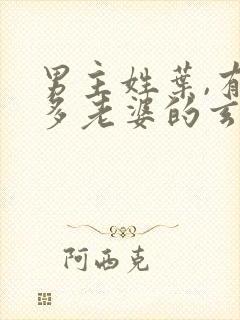 男主姓葉,有
多老婆的玄
阿西克